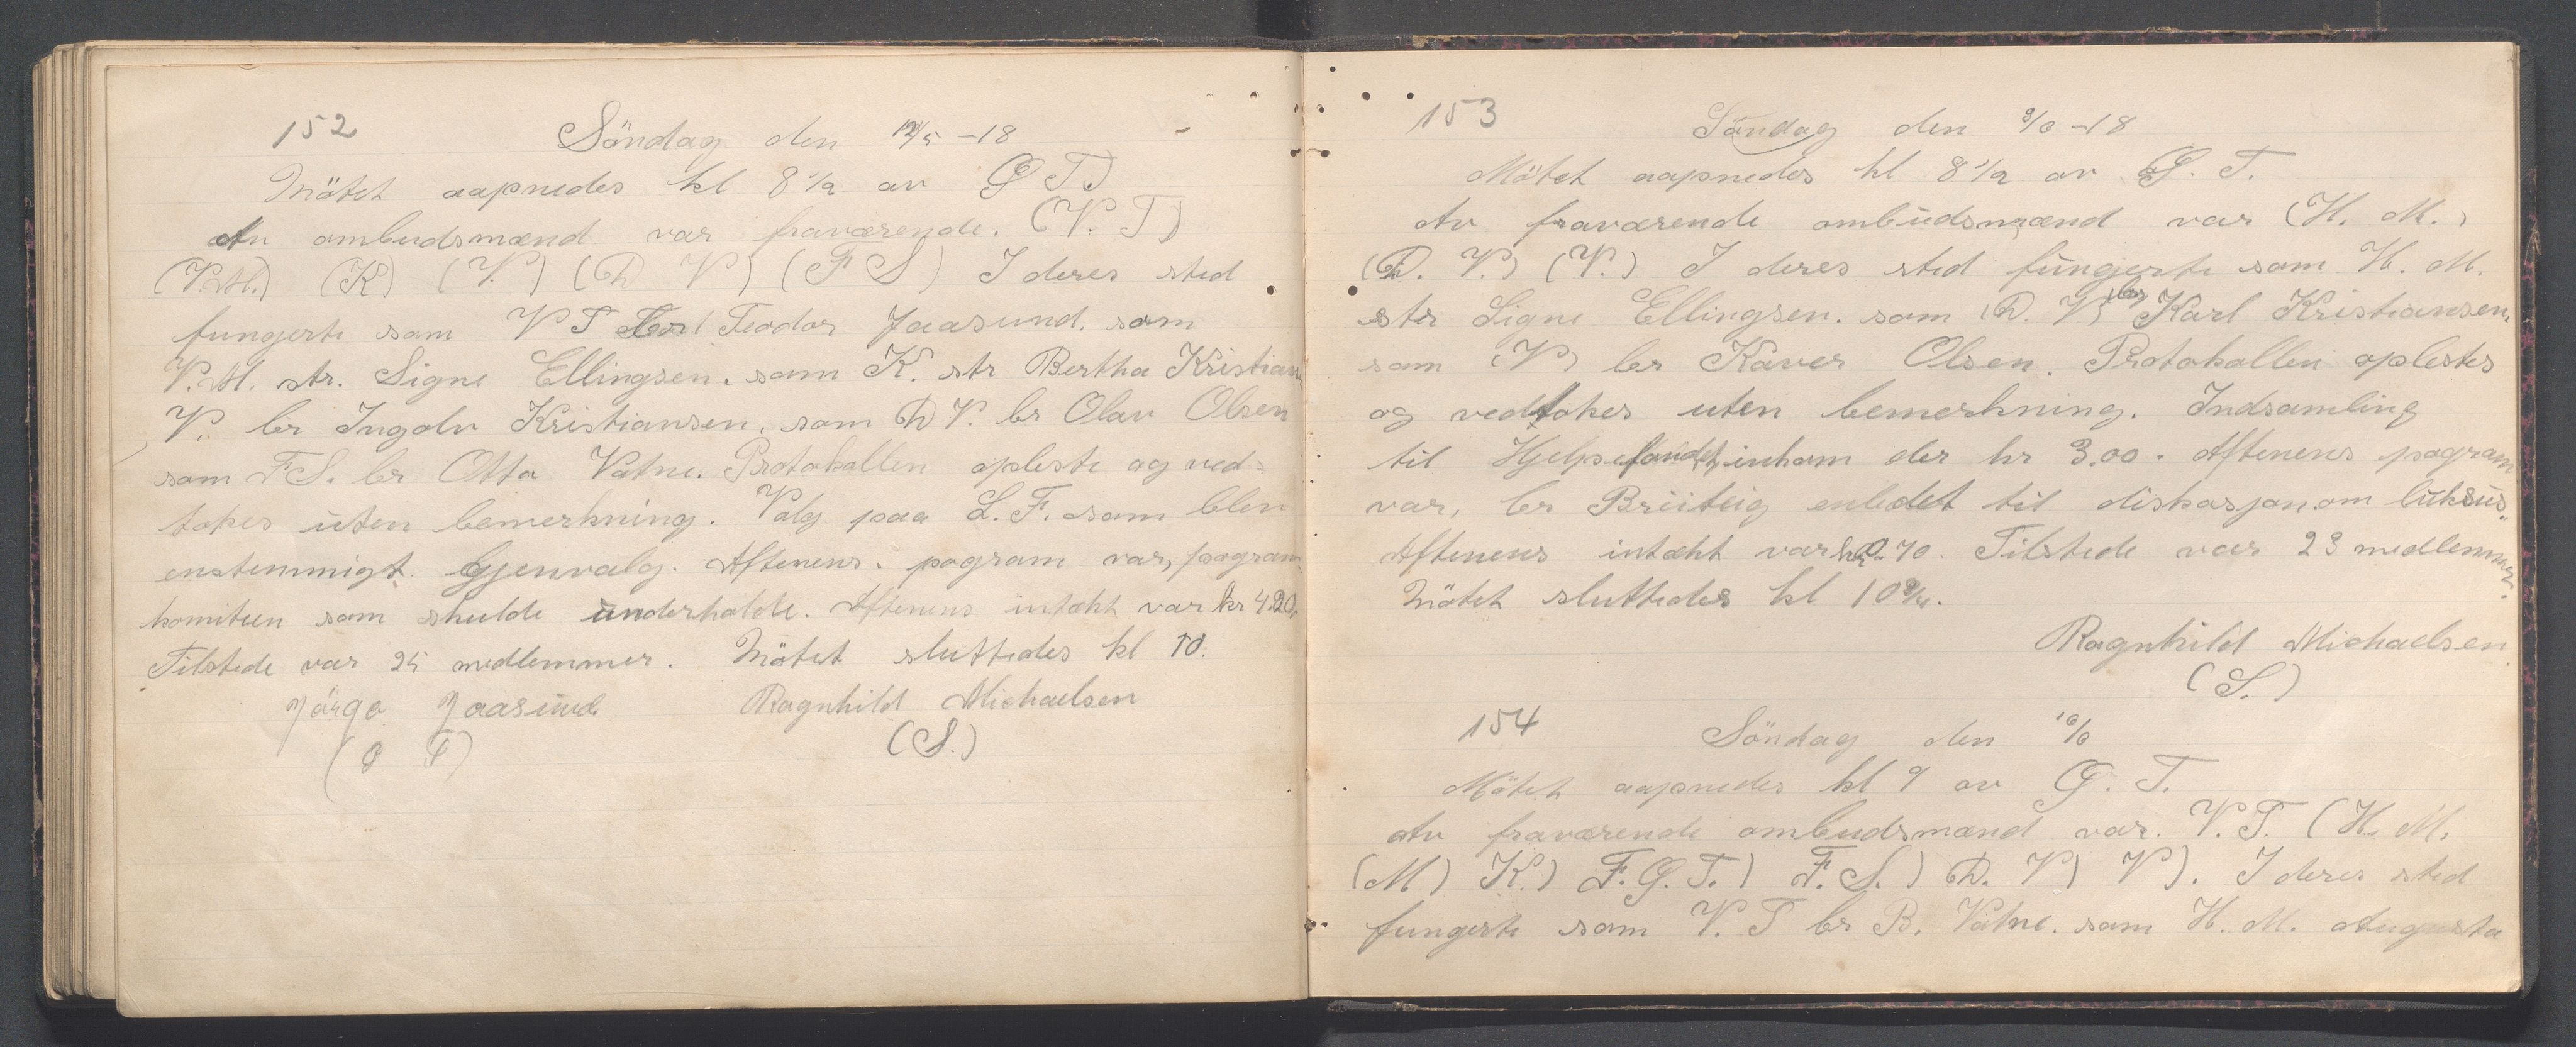 152 Söndag den 12/5 -18
Mötet aapnedes kl 8 1/2 av (O T)
Av ombudsmænd var fraværende. (V. T)
(V.M.) (K) (V.) (D V) (F S) I deres sted
fungerte som V T Teodor Jaasund. som
V.M. str. Signe Ellingsen. som K. str Bertha Kristian
V. br Ingolv Kristiansen, som D V. br Olav Olsen
som F S. br Otto Vatne. Protokollen opleste og ved-
tokes uten bemerkning. Valg paa L. F. som blev
enstemmigt. Gjenvalg. Aftenens. pogram var, pogram
komiteen som skulde underholde. Aftenens intækt var kr 4.20.
Tilstede var 25 medlemmer. Mötet sluttedes kl 10.
Jörgo Jaasund Ragnhild Michaelsen
(O T) (S.)
153 Söndag den 9/6 -18
Mötet aapnedes kl 8 1/2 av O. T.
Av fraværende ombudsmænd var (H. M.)
(D. V.) (V.) I deres sted fungerte som H. M.
str Signe Ellingsen. som (D. V) br Karl Kristiansen,
som (V) br Kaver Olsen. Protokollen oplestes
og vedtokes uten bemerkning. Indsamling
til Hjelpefondet, inkom der kr 3.00. Aftenens pogram
var, br Breiteig enledet til diskasjon om luksus.
Aftenens intækt var kr 0.70. Tilstede var 23 medlemmer.
Mötet sluttedes kl 10 3/4.
Ragnhild Michaelsen
(S.)
154 Söndag den 16/6
Mötet aapnedes kl 9 av O. T.
Av fraværende ombudsmænd var. V. T. (H. M.
(M) K.) F. O. T.) F. S.) D. V) V). I deres sted
fungerte som V. T br B. Vatne. som H. M. Augusta